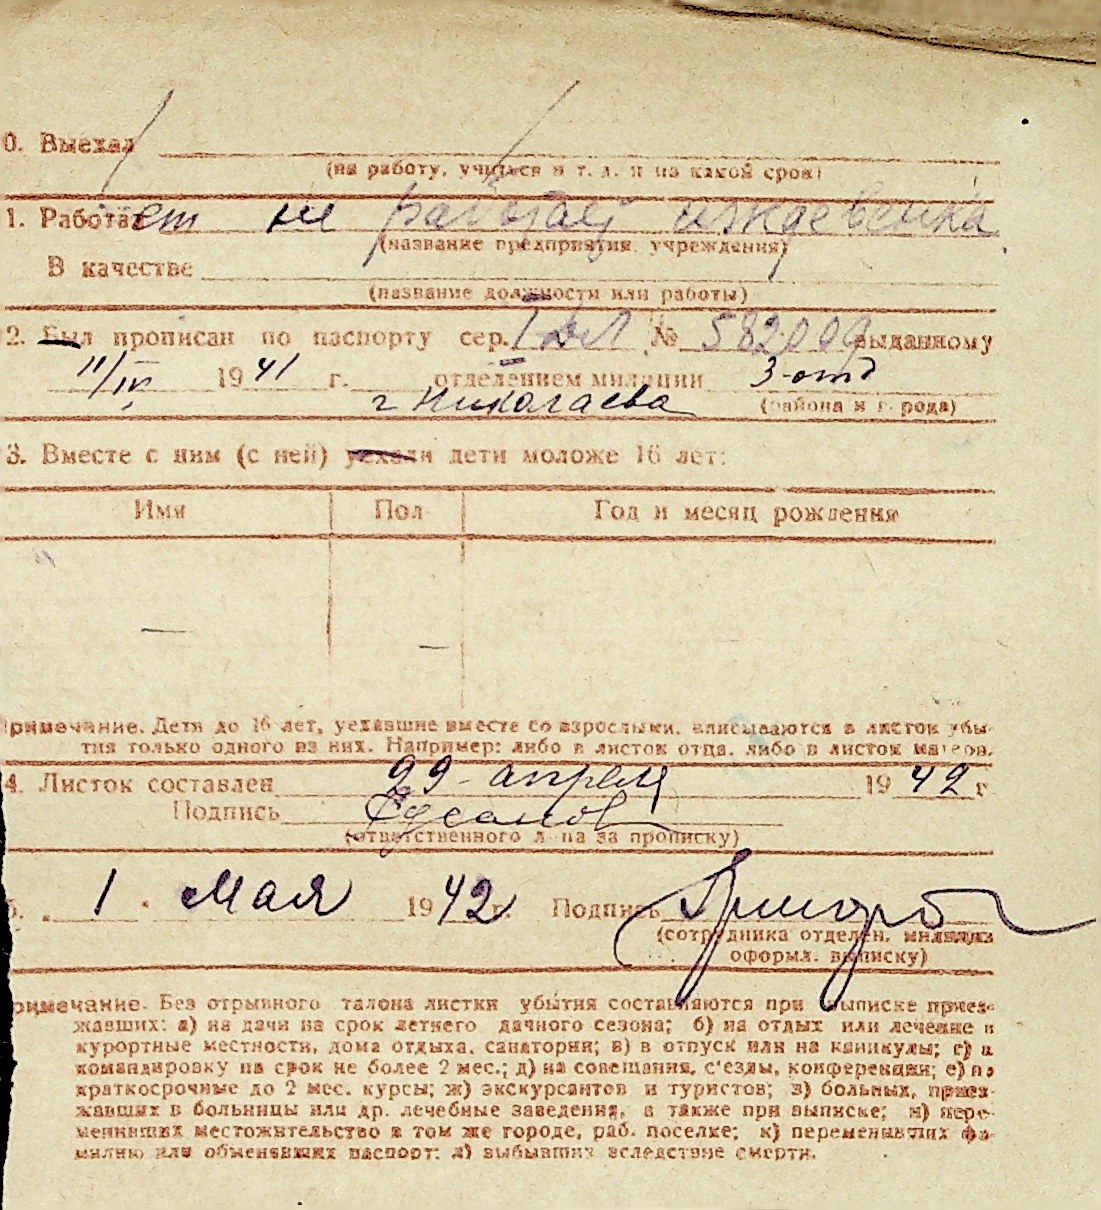 0. Выехал
(на работу, учиться и т. д. и на какой срок)
1. Работает не работает иждевенка
(название предприятия, учреждения)
В качестве
(название должности или работы)
2. Был прописан по паспорту сер. I ДЛ № 582009 выданному
11/IV 1941 г. отделением милиции 3-отд
г Николаева (района и города)
3. Вместе с ним (с ней) уехали дети моложе 16 лет:
Имя Пол Год и месяц рождения
— —
Примечание. Дети до 16 лет, уехавшие вместе со взрослыми, вписываются в листок убы-
тия только одного из них. Например: либо в листок отца, либо в листок матери.
4. Листок составлен 29 - апреля 1942 г
Подпись
(ответственного лица за прописку)
5. 1 Мая 1942 г. Подпись
(сотрудника отделен. милиции
оформл. выписку)
Примечание. Без отрывного талона листки убытия составляются при выписке приез-
жавших: а) на дачи на срок летнего дачного сезона; б) на отдых или лечение в
курортные местности, дома отдыха, санатории; в) в отпуск или на каникулы; г) в
командировку на срок не более 2 мес.; д) на совещания, с'езды, конференции; е) на
краткосрочные до 2 мес. курсы; ж) экскурсантов и туристов; з) больных, приез-
жавших в больницы или др. лечебные заведения, а также при выписке; и) пере-
менивших местожительство в том же городе, раб. поселке; к) переменивших фа-
милию или обменявших паспорт; л) выбывших вследствие смерти.